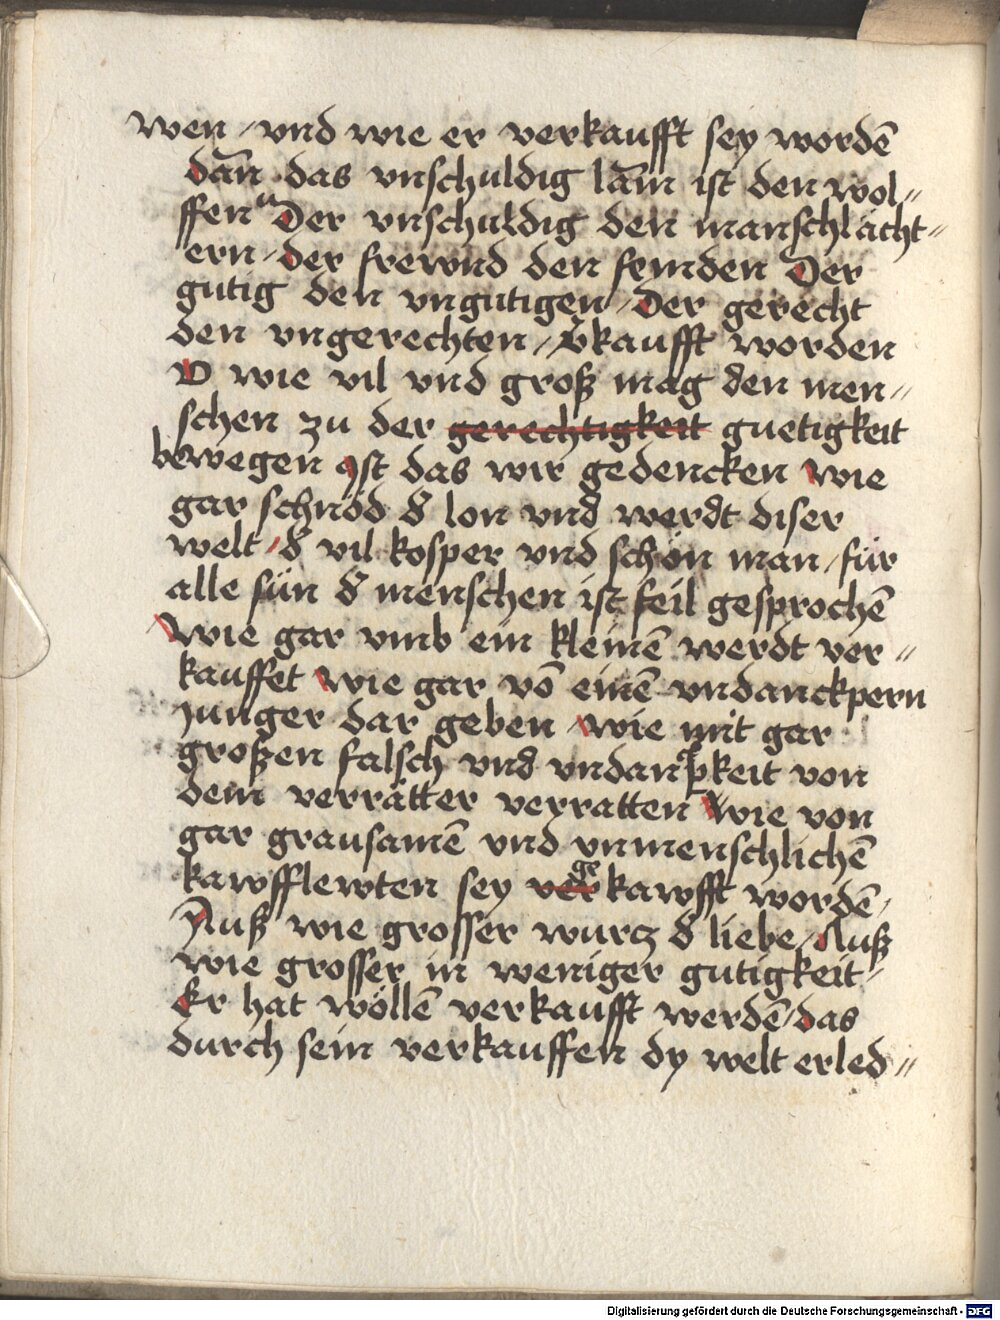 wen / vnd wie er verkaufft sey wordē
dān das vnschuldig lām ist den wol〃
ffen Der vnschuldig den manschlacht〃
ern / der frewnd den feinden Der
gutig den vngutigen / Der gerecht
den vngerechten / v̄kaufft worden
O wie vil vnd groß mag den men〃
schen zu der gerechtigkeit guetigkeit
bewegen Ist das wir gedencken Wie
gar schnöd d̄ lon vnd werdt diser
welt / d̄ vil kosper vnd schön man / für
alle sün d̄ menschen ist feil gesprochē
Wie gar vmb ein kleinē werdt ver〃
kauffet Wie gar vō einē vndanckpern
Junger dar geben Wie mit gar
großen falsch vnd vndanpkeit von
dem verrätter verratten Wie von
gar grausamē vnd vnmenschlichē
kawfflewten sey ver ge kawfft wordē /
Auß wie grosser wurcz d̄ liebe / Auß
wie grosser in weniger gutigkeit /
Er hat wöllē verkaufft werdē / das
durch sein verkauffen dy welt erled〃
Digitalisierung gefördert durch die Deutsche Forschungsgemeinschaft - DFG